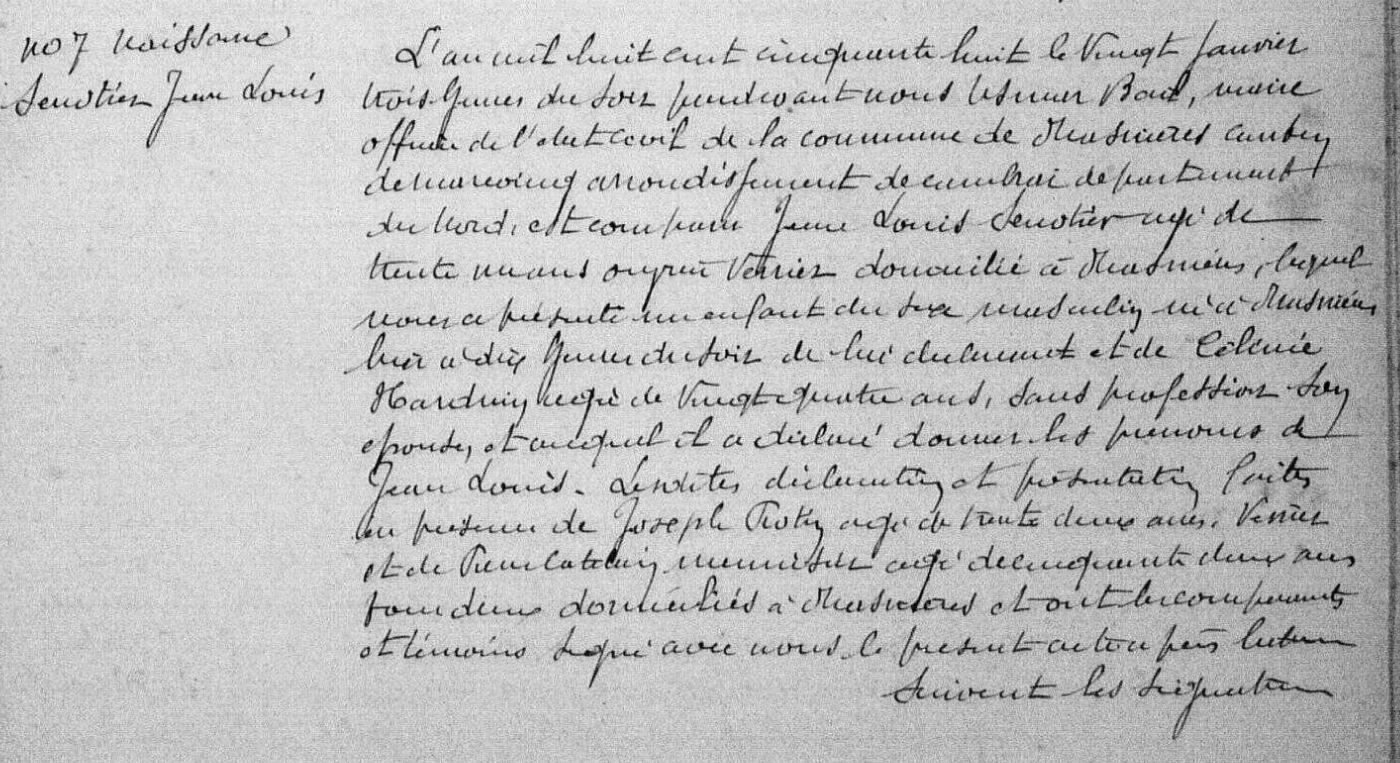 no 7 naissance
Senotier Jean Louis
L'an mil huit cent cinquante huit le vingt janvier
trois heures du soir pardevant nous maire
officier de l'état civil de la commune de Masnières canton
de marcoing arrondissement de cambrai département
du nord, est comparu Jean Louis Senotier agé de
trente un ans ouvrier verrier domicilié à Masnières, lequel
nous a présenté un enfant du sexe masculin né à Masnières
hier à dix heures du soir de lui déclarant et de Célinie
Harduin agée de vingt quatre ans, sans profession son
épouse, et auquel il a déclaré donner les prénoms de
Jean Louis. Lesdites déclaration et présentation faites
en présence de Joseph agé de trente deux ans, verrier
et de menuisier agé de cinquante deux ans
tous deux domiciliés à Masnières et ont les comparants
et témoins signé avec nous le présent acte après lecture
Suivent les signatures